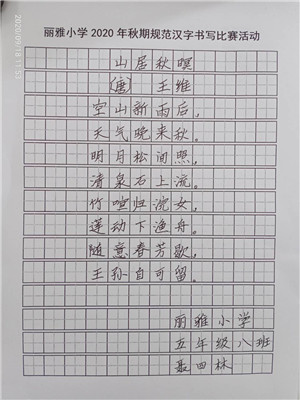 丽雅小学2020年秋期规范汉字书写比赛活动
山居秋暝
(唐) 王维
空山新雨后,
天气晚来秋。
明月松间照,
清泉石上流。
竹喧归浣女,
莲动下渔舟。
随意春芳歇,
王孙自可留。
丽雅小学
五年级八班
聂四林